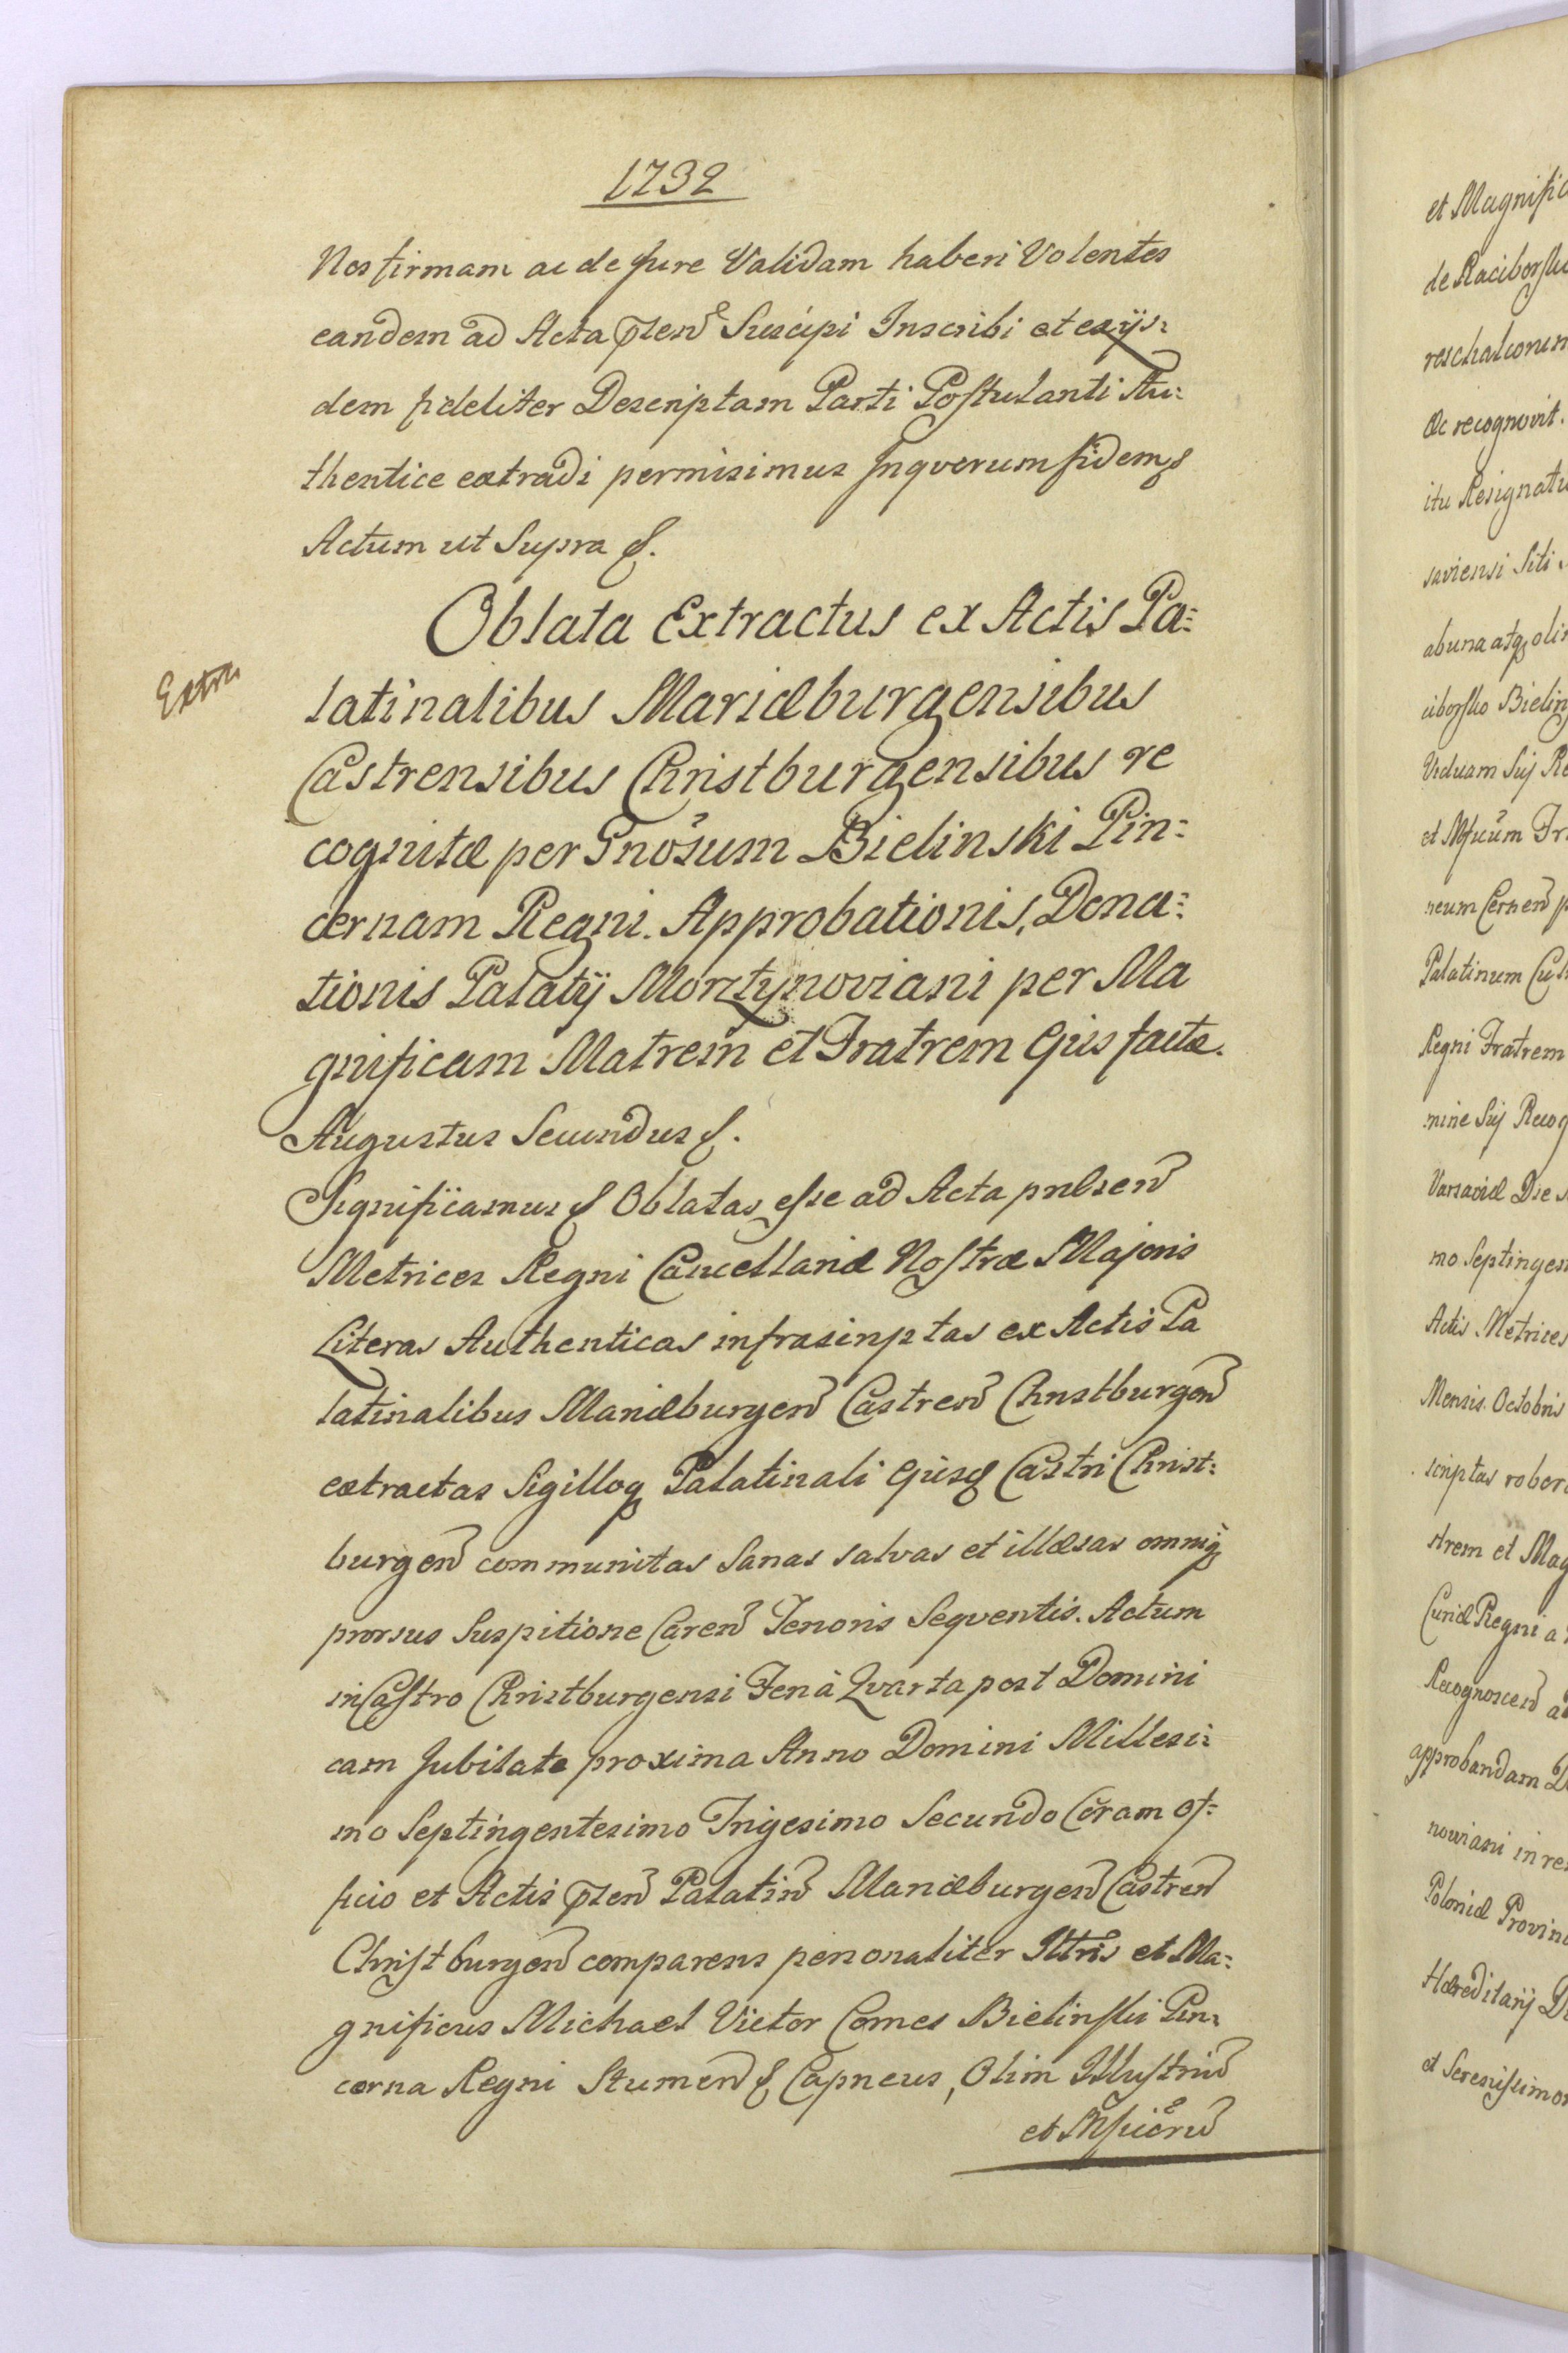 1732
Nos firmam ac de Jure Validam haberi Volentes
eandem ad Acta pzen̄ Suscipi Inscribi et ex ijs=
dem fideliter Descriptam Parti Postulanti Au=
thentice extradi permisimus Inqverum fidem &
Actum ut Supra &.
Extra
Oblata Extractus ex Actis Pa=
latinalibus Mariæburgensibus
Castrensibus Christburgensibus re
cognitæ per Gnōsum Bielinski Pin=
cernam Regni. Approbationis, Dona=
tionis Palatÿ Morztynoviani per Ma
gnificam Matrem et Fratrem Ejus factæ.
Augustus Secundus &.
Significamus & Oblatas esse ad Acta pnlsen̄
Metrices Regni Cancellariæ Nostræ Majoris
Literas Authenticas infrascriptas ex Actis Pa
latinalibus Mariæburgen̄ Castren̄ Christburgen̄
extractas Sigilloq Palatinali Ejusq Castri Christ=
burgen̄ communitas Sanas salvas et illæsas omniq
prorsus Suspitione Caren̄ Tenoris Seqventis. Actum
in Castro Christburgensi Feriâ Qvarta post Domini
cam Jubilate proxima Anno Domini Millesi=
mo Septingentesimo Trigesimo Secundo Coram of=
ficio et Actis pzen̄ Palatin̄ Mariæburgen̄ Castren̄
Christburgen̄ comparens personaliter Illtris et Ma=
gnificus Michael Victor Comes Bielinski Pin=
cerna Regni Stumen̄ & Capneus, Olim Illustriū
et Mficorū
et Magnific
de Raciborsko
reschalcorum
Ac recognovit.
itu Resignatu
saviensi Siti
ab una atq olim
ciborsko Bielin
Viduam Sij Re
et Mficum Fr
neum Cernen̄ p
Palatinum Cul
Regni Fratrem
mine Sij Recog
Varsaviæ Die
mo Septingen
Actis Metrices
Mensis Octobris
scriptas robora
strem et Mag
Curiæ Regni a
Recognoscen̄ a
approbandam D
noviani in re
Poloniæ Provinc
Hæreditarij D
et Serenissimo